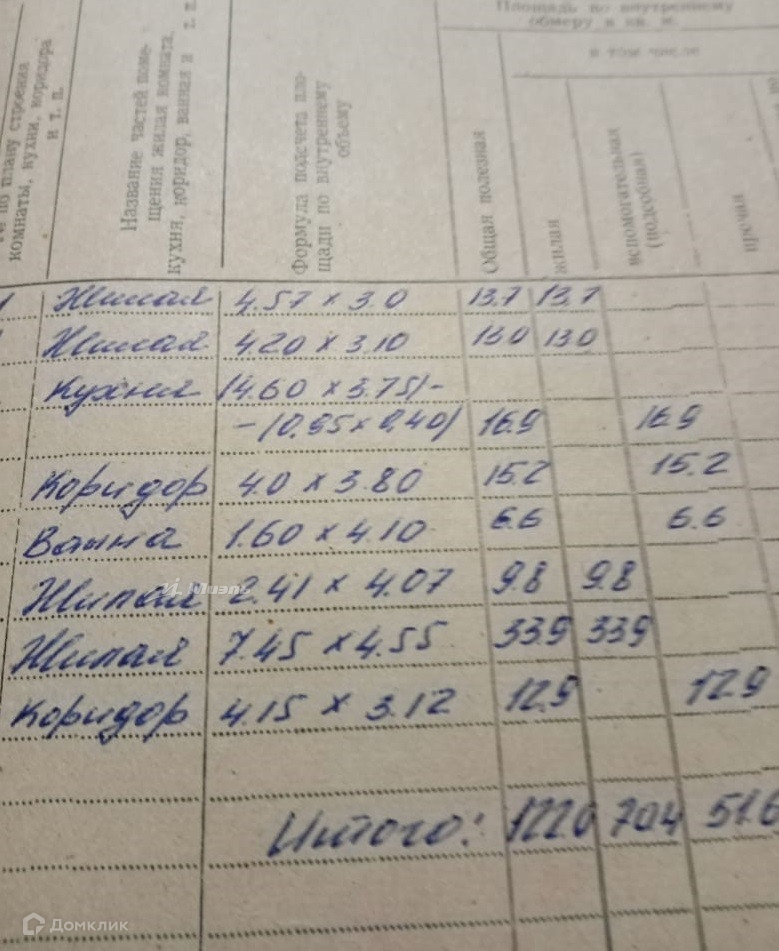 Площадь по внутреннему
обмеру в кв. м.
в том числе
по плану строения
комнаты, кухни, коридора
и т. п.
Название частей поме-
щения жилая комната,
кухня, коридор, ванная и т. п.
Формула подсчета пло-
щади по внутреннему
объему
Общая полезная
жилая
вспомогательная
(подсобная)
прочая
1 Жилая 4.57 x 3.0 13.7 13.7
Жилая 4.20 x 3.10 13.0 13.0
Кухня (4.60 x 3.75)-
-(0.95 x 0,40) 16.9 16.9
Коридор 4.0 x 3.80 15.2 15.2
Ванна 1.60 x 4.10 6.6 6.6
Жилая 2.41 x 4.07 9.8 9.8
Миэль
Жилая 7.45 x 4.55 33.9 33.9
Коридор 4.15 x 3.12 12.9 12.9
Итого: 122.0 70.4 51.6
Домклик